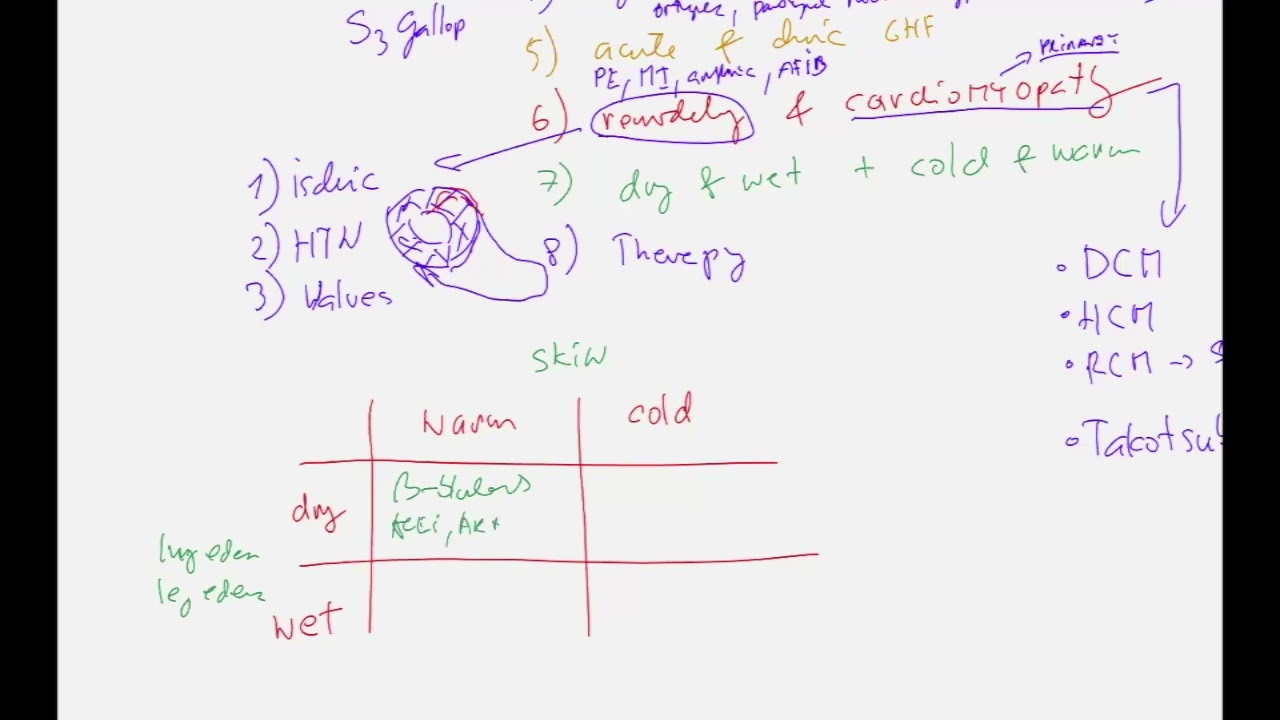 S3 Gallop
5) acute & chronic CHF
PE, MI, , AFIB
6) remodeling & cardiomyopathy
PRIMARY
1) ischemic
2) HTN
3) Valves
7) dry & wet + cold & warm
8) Therapy
• DCM
• HCM
• RCM →
• Takotsu
skin
warm
cold
dry
β-blockers
ACEi,
lung edem
leg edema
wet